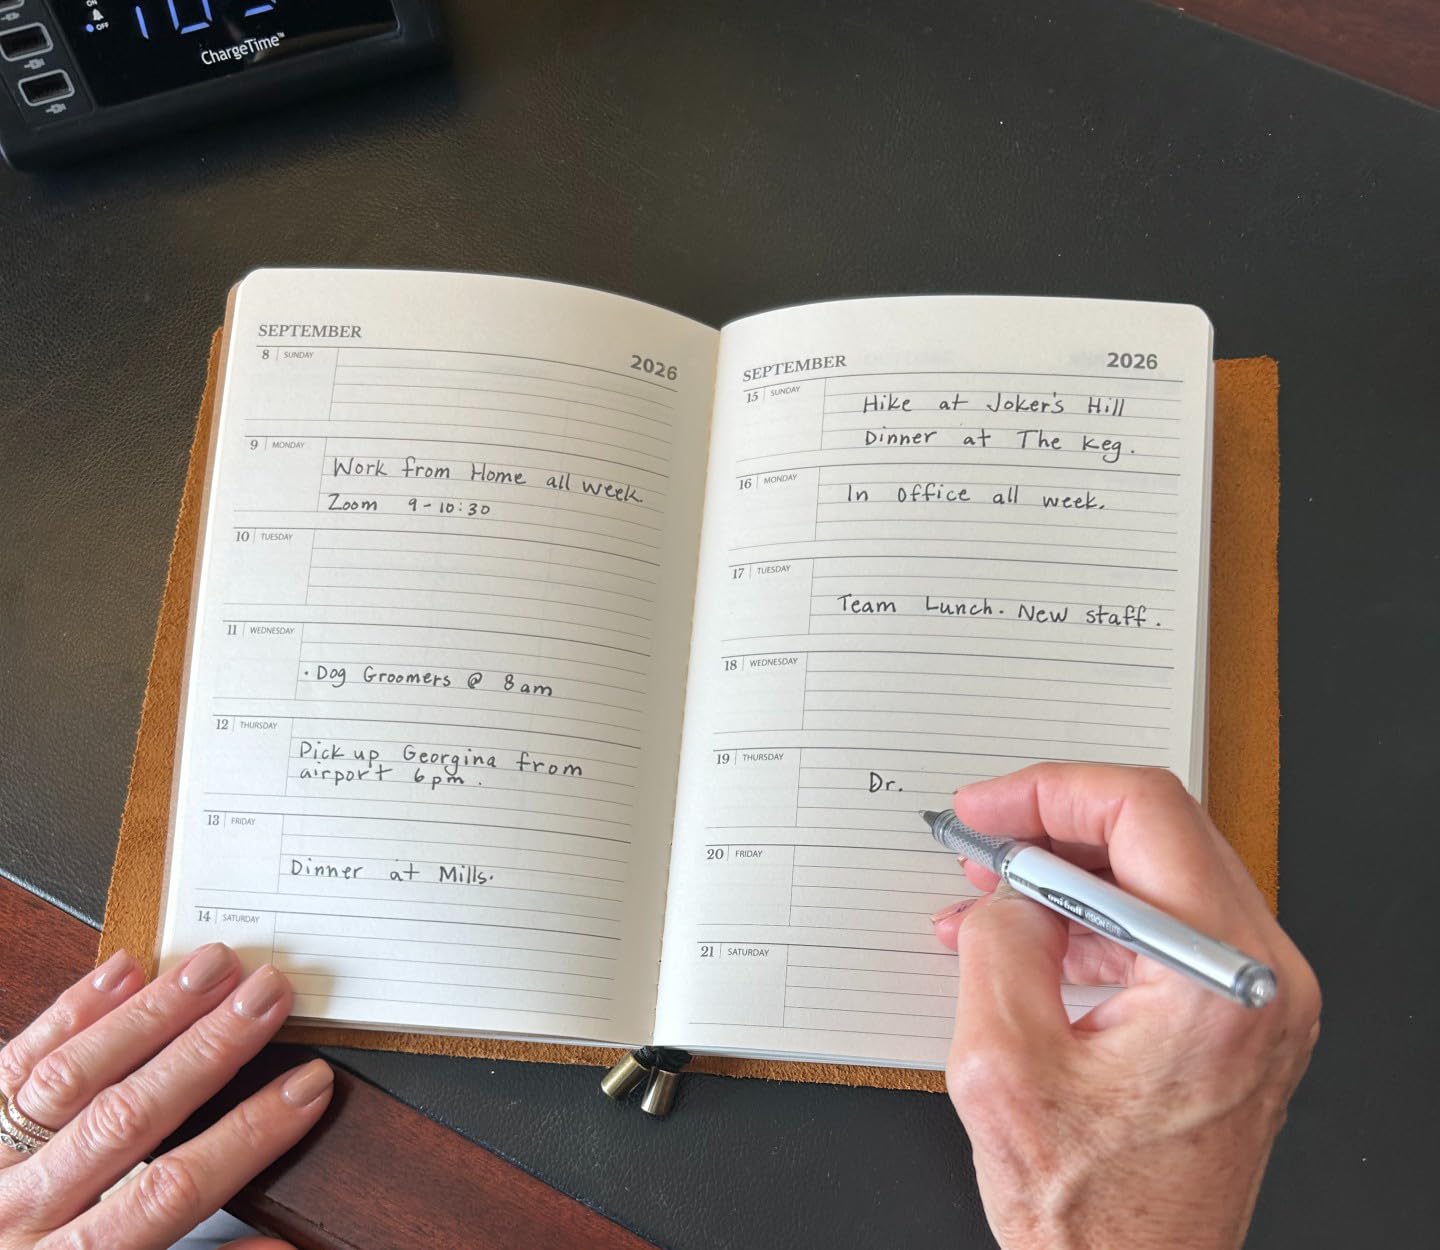 ON
OFF
ChargeTime™
SEPTEMBER
2026
8 | SUNDAY
9 | MONDAY
Work from Home all week.
Zoom 9-10:30
10 | TUESDAY
11 | WEDNESDAY
· Dog Groomers @ 8am
12 | THURSDAY
Pick up Georgina from
airport 6pm.
13 | FRIDAY
Dinner at Mills.
14 | SATURDAY
SEPTEMBER
2026
15 | SUNDAY
Hike at Joker's Hill
Dinner at The Keg.
16 | MONDAY
In office all week.
17 | TUESDAY
Team Lunch. New staff.
18 | WEDNESDAY
19 | THURSDAY
Dr.
20 | FRIDAY
21 | SATURDAY
uni-ball VISION ELITE